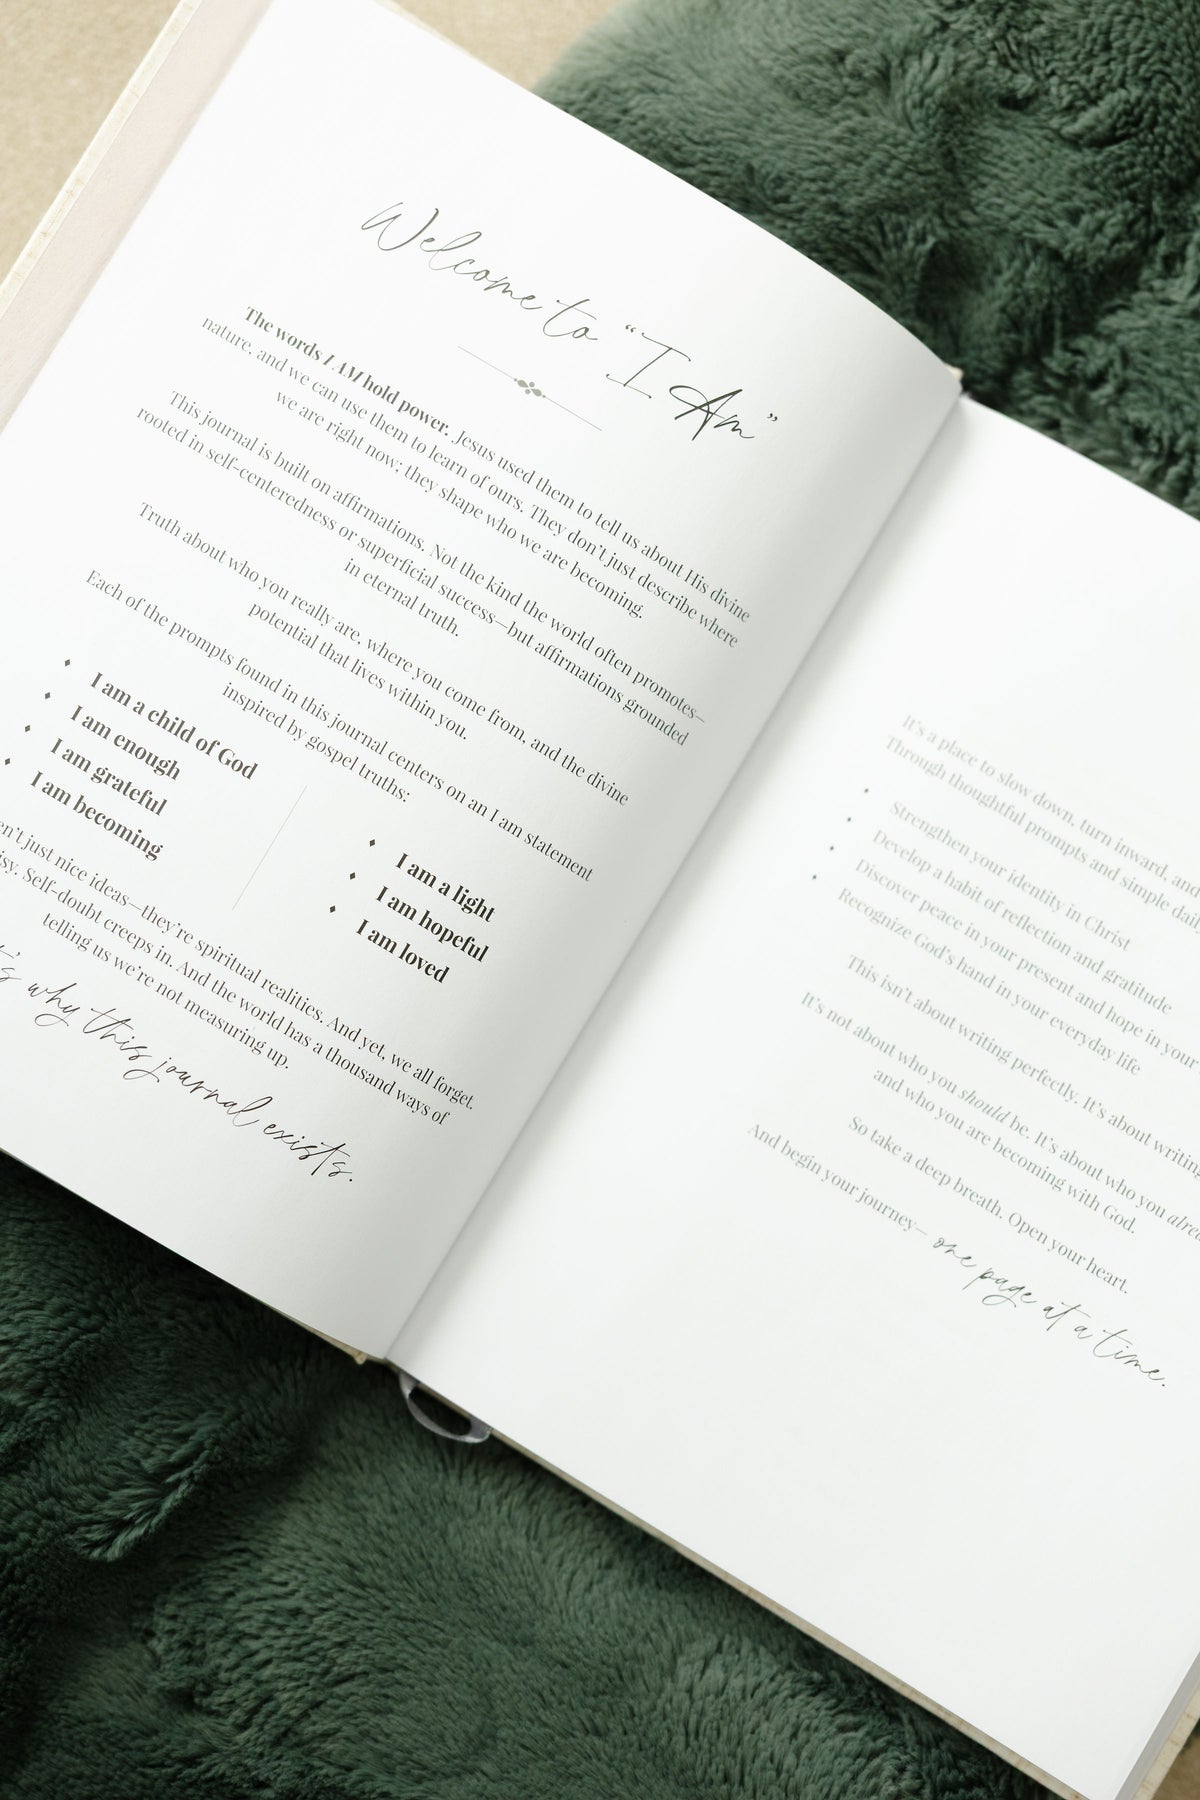 Welcome to "I Am"
The words I AM hold power. Jesus used them to tell us about His divine
nature, and we can use them to learn of ours. They don't just describe where
we are right now; they shape who we are becoming.
This journal is built on affirmations. Not the kind the world often promotes—
rooted in self-centeredness or superficial success—but affirmations grounded
in eternal truth.
Truth about who you really are, where you come from, and the divine
potential that lives within you.
Each of the prompts found in this journal centers on an I am statement
inspired by gospel truths:
♦ I am a child of God
♦ I am enough
♦ I am grateful
♦ I am becoming
♦ I am a light
♦ I am hopeful
♦ I am loved
just nice ideas—they're spiritual realities. And yet, we all forget.
Self-doubt creeps in. And the world has a thousand ways of
telling us we're not measuring up.
why this journal exists.
It's a place to slow down, turn inward, and
Through thoughtful prompts and simple daily
♦ Strengthen your identity in Christ
♦ Develop a habit of reflection and gratitude
♦ Discover peace in your present and hope in your
♦ Recognize God's hand in your everyday life
This isn't about writing perfectly. It's about writing
It's not about who you should be. It's about who you
and who you are becoming with God.
So take a deep breath. Open your heart.
And begin your journey— one page at a time.